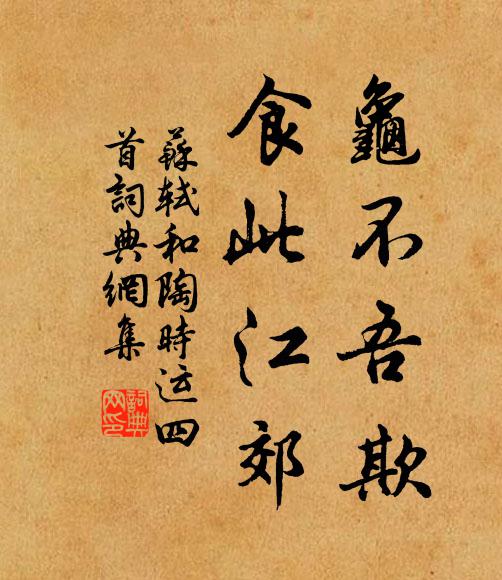 龜不吾欺
食此江郊
蘇軾和陶時运四
首詞典網集
詞典
网印